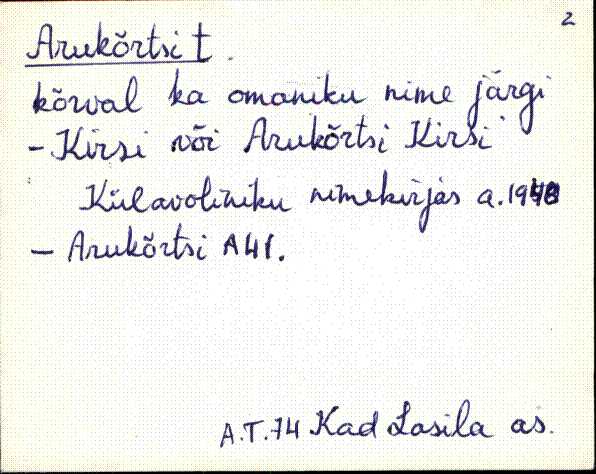 2
Arukõrtsi t.
kõrval ka omaniku nime järgi
- Kirsi või Arukõrtsi Kirsi
Külavoliniku nimekirjas a.
- Arukõrtsi A41.
A.T.74 Kad Lasila as.